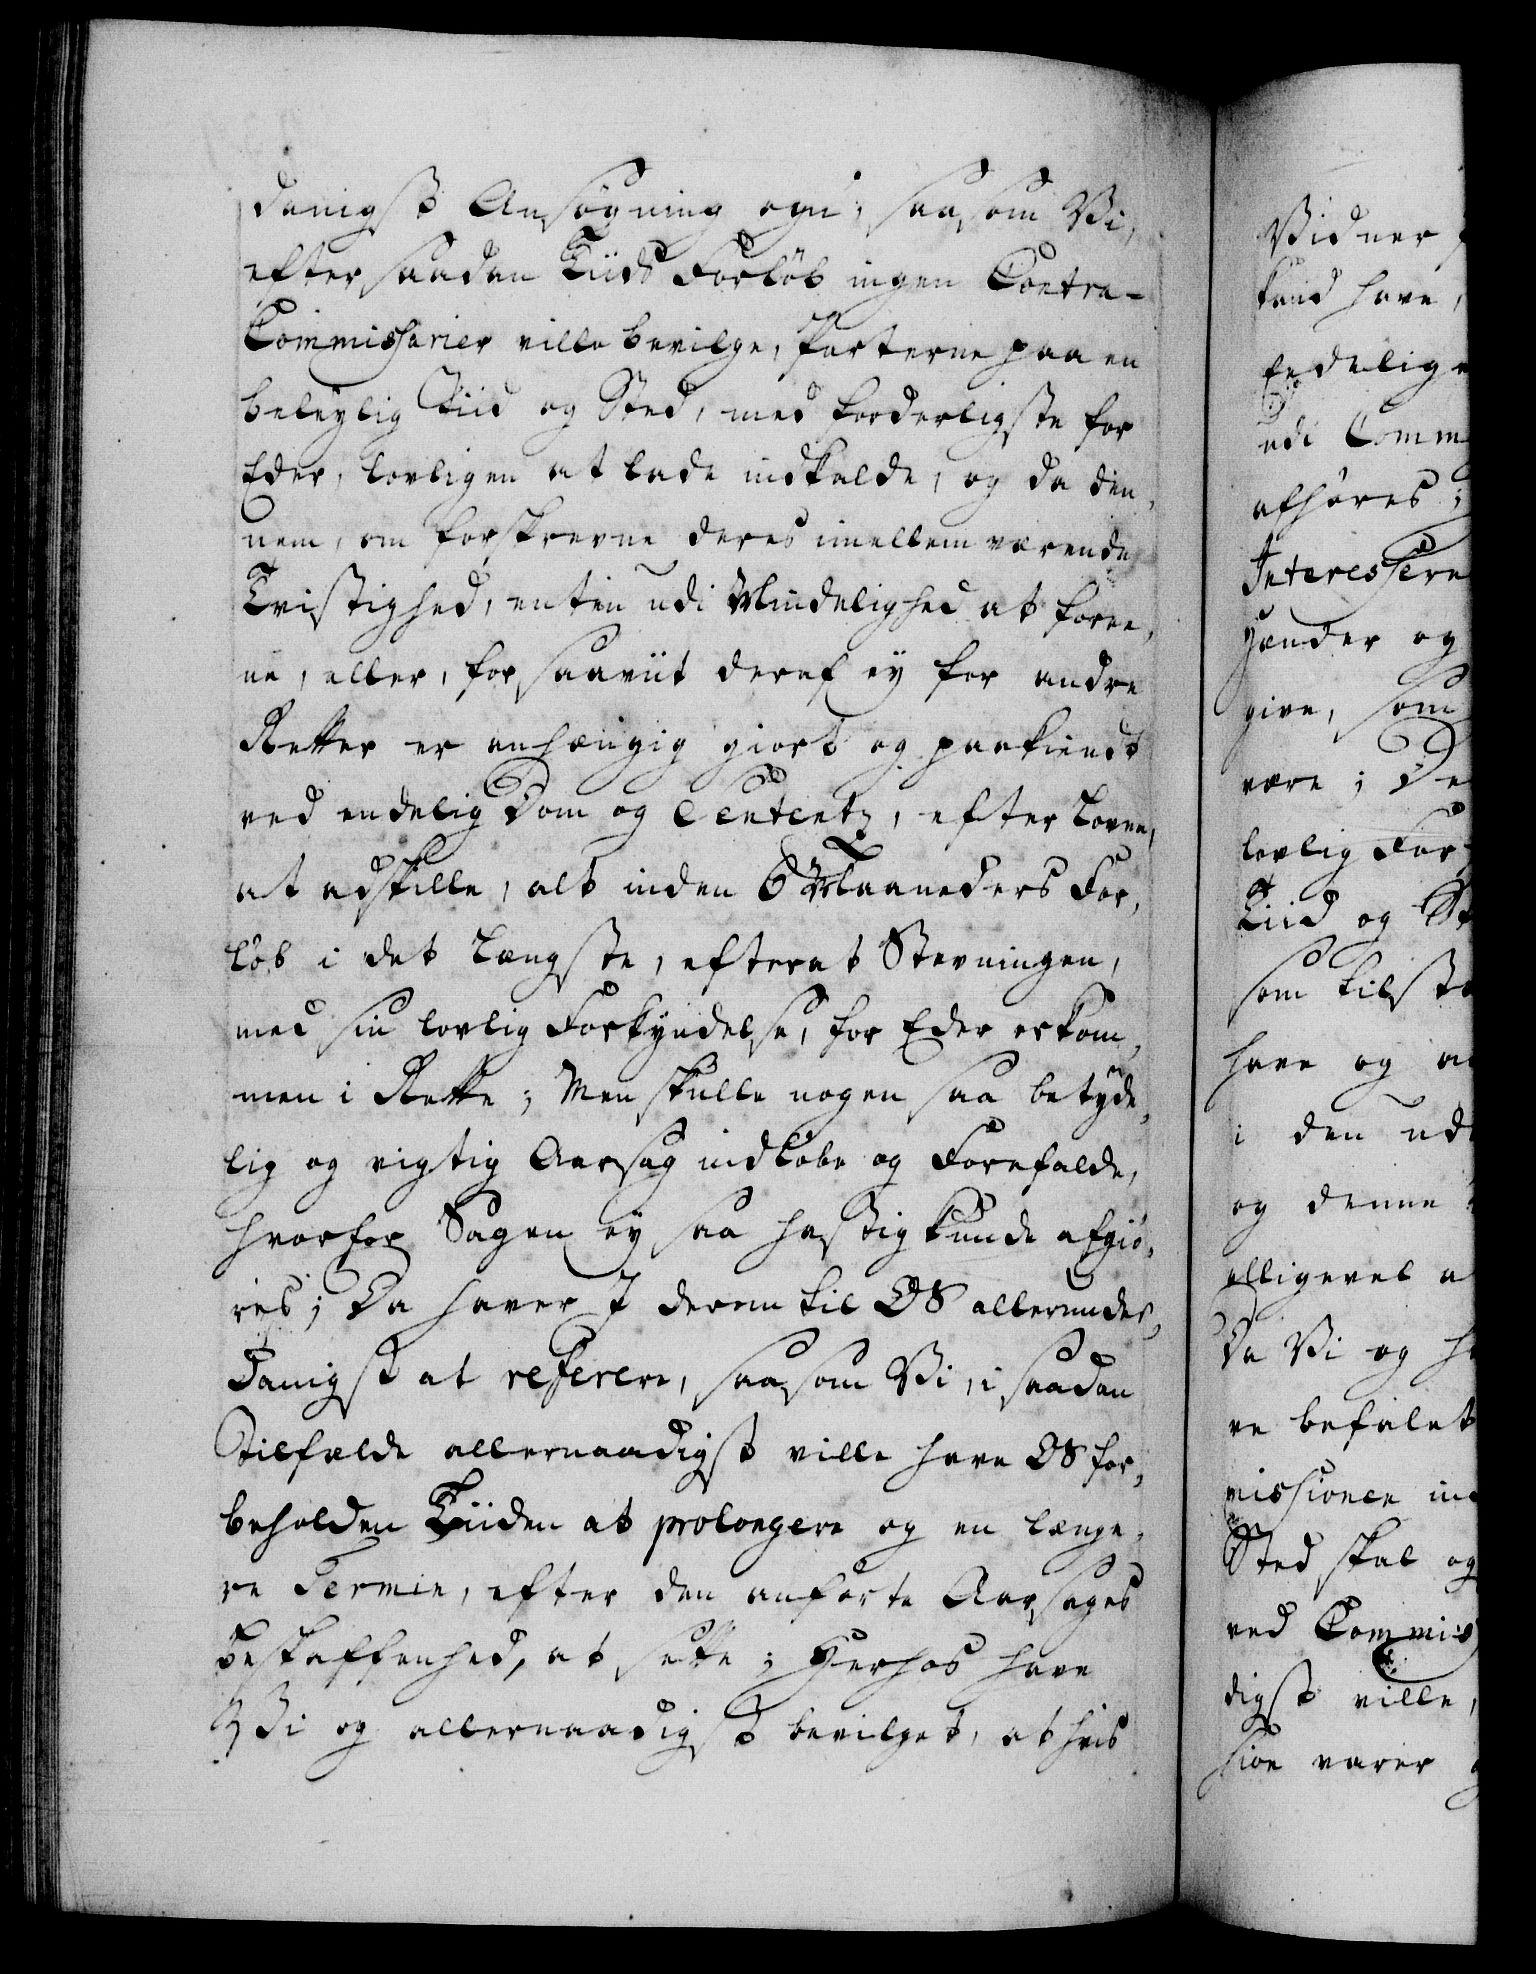 danigst Ansøgning agi; saasom Vi,
efter saadan Tiids Forløb ingen Contra-
Commissarier ville bevilge, Parterne paa en
beleylig Tiid og Sted, med forderligste for
Eder, lovligen at lade indkalde, og da den-
nem, om forskrevne deres imellem værende
Tvistighed, enten udi Mindelighed at foree-
ne, eller, for saaviit deraf ey for andre
Retter er anhængig giort og paakiendt
ved endelig Dom og Sententz, efter Loven,
at adskille, alt inden 6 Maaneders For-
løb i det længste, efterat Stevningen,
med sin lovlig Forkyndelse, for Eder er kom-
men i Rette; Men skulle nogen saa betyde-
lig og vigtig Aarsag indløbe og Forefalde,
hvorfor Sagen ey saa hastig kunde afgiø-
res; Da haver I derom til OS allerunder-
Danigst at referere, saasom Vi, i saadan
Tilfælde allernaadigst ville have OS for-
beholden Tiiden at prolongere og en længe-
re Termin, efter den anførte Aarsages
Beskaffenhed, at sette; Herhos have
Vi og allernaadigst bevilget, at hvis
Vidner
kand have,
Endelige
udi Comm
afhøres;
Interessere
Hænder og
give, som
være; De
lovlig For
Tiid og St
som tilst
have og
i den ud
og denne
alligevel
Da Vi og
re befalet
missionen
Sted skal og
ved Commis
digst ville,
sion varer